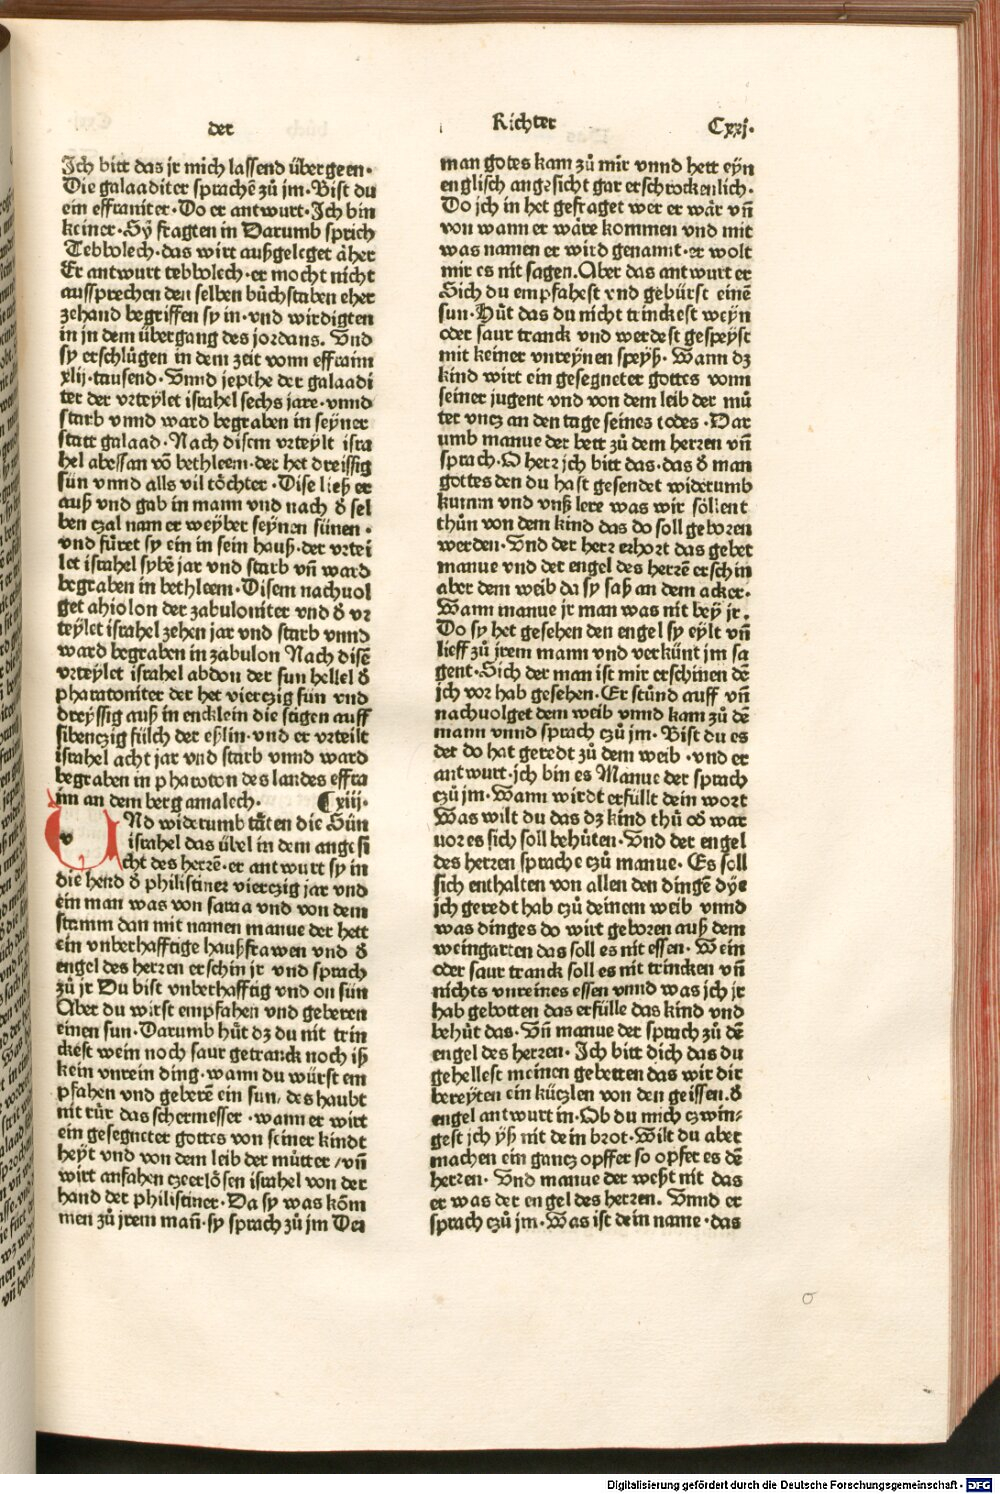 der Richter Cxxj.
Ich bitt das jr mich lassend übergeen·
Die galaaditer sprachē zů jm·Bist du
ein effraniter·Do er antwurt·Ich bin
keiner·Sÿ fragten in Darumb sprich
Tebbolech·das wirt außgeleget äher
Er antwurt tebbolech·er mocht nicht
aussprechen den selben bůchstaben eher
zehand begriffen sy in·vnd wirdigten
in jn dem übergang des jordans. Vnd
sy erschlůgen in dem zeit vonn effraim
xlij·tausend·Vnnd jepthe der galaadi
ter der vrteylet israhel sechs jare·vnnd
starb vnnd ward begraben in seyner
statt galaad·Nach disem vrteylt isra
hel abessan vō bethleem·der het dreissig
sün vnnd alls vil töchter·Dise ließ er
auß vnd gab in mann vnd nach d̄ sel
ben czal nam er weyber seynen sünen·
vnd füret sy ein in sein hauß·der vrtei
let israhel sybē jar vnd starb vn̄ ward
begraben in bethleem·Disem nachuol
get ahiolon der zabuloniter vnd d̄ vr
teylet israhel zehen jar vnd starb vnnd
ward begraben in zabulon Nach disē
vrteylet israhel abdon der sun hellel d̄
pharatoniter der het vierczig sün vnd
dreyssig auß in encklein die stigen auff
sibenczig fülch der eßlin·vnd er vrteilt
israhel acht jar vnd starb vnnd ward
begraben in pharoton des landes effra
im an dem berg amalech· Cxiij·
VNd widerumb tätten die Sün
israhel das übel in dem angesi
cht des herrē·er antwurt sy in
die hend d̄ philistiner vierczig jar vnd
ein man was von saraa vnd von dem
stamm dan mit namen manue der hett
ein vnberhafftige haußfrawen vnd d̄
engel des herren erschin jr vnd sprach
zů jr Du bist vnberhafftig vnd on sün
Aber du wirst empfahen vnd geberen
einen sun·Darumb hüt dz du nit trin
ckest wein noch saur getranck noch iß
kein vnrein ding·wann du würst em
pfahen vnd geberē ein sun, des haubt
nit rür das schermesser·wann er wirt
ein gesegneter gottes von seiner kindt
heyt vnd von dem leib der můtter/vn̄
wirt anfahen czeerlösen israhel von der
hand der philistiner·Da sy was kōm
men zů jrem man̄·sy sprach zů jm Der
man gotes kam zů mir vnnd hett eyn
englisch angesicht gar erschrockenlich·
Do jch in het gefraget wer er wär vn̄
von wann er wäre kommen vnd mit
was namen er wird genannt·er wolt
mir es nit sagen. Aber das antwurt er
Sich du empfahest vnd gebürst einē
sun·Hüt das du nicht trinckest weyn
oder saur tranck vnd werdest gespeyst
mit keiner vnreynen speyß·Wann dz
kind wirt ein gesegneter gottes vonn
seiner jugent vnd von dem leib der mů
ter vncz an den tage seines todes·Dar
umb manue der bett zů dem herren vn̄
sprach·O herr jch bitt das·das d̄ man
gottes den du hast gesendet widerumb
kumm vnd vnß lere was wir söllent
thůn von dem kind das do soll geboren
werden·Vnd der herr erhort das gebet
manue vnd der engel des herrē erschin
aber dem weib da sy saß an dem acker·
Wann manue jr man was nit bey jr.
Do sy het gesehen den engel sy eylt vn̄
lieff zů jrem mann vnd verkünt jm sa
gent·Sich der man ist mir erschinen dē
jch vor hab gesehen·Er stůnd auff vn̄
nachuolget dem weib vnnd kam zů dē
mann vnnd sprach czů jm·Bist du es
der do hat geredt zů dem weib·vnd er
antwurt·jch bin es Manue der sprach
czů jm·Wann wirdt erfüllt dein wort
Was wilt du das dz kind thů od̄ war
uor es sich soll behüten·Vnd der engel
des herren sprache czů manue·Es soll
sich enthalten von allen den dingē dye
jch geredt hab czů deinem weib vnnd
was dinges do wirt geboren auß dem
weingarten das soll es nit essen·Wein
oder saur tranck soll es nit trincken vn̄
nichts vnreines essen vnnd was jch jr
hab gebotten das erfülle das kind vnd
behüt das·Vn̄ manue der sprach zů dē
engel des herren·Ich bitt dich das du
gehellest meinen gebetten das wir dir
bereyten ein küczlen von den geissen·d̄
engel antwurt in·Ob du mich czwin-
gest jch yß nit dein brot·Wilt du aber
machen ein gancz opffer so opfer es dē
herren·Vnd manue der weßt nit das
er was der engel des herren. Vnnd er
sprach czů jm·Was ist dein name·das
Digitalisierung gefördert durch die Deutsche Forschungsgemeinschaft - DFG